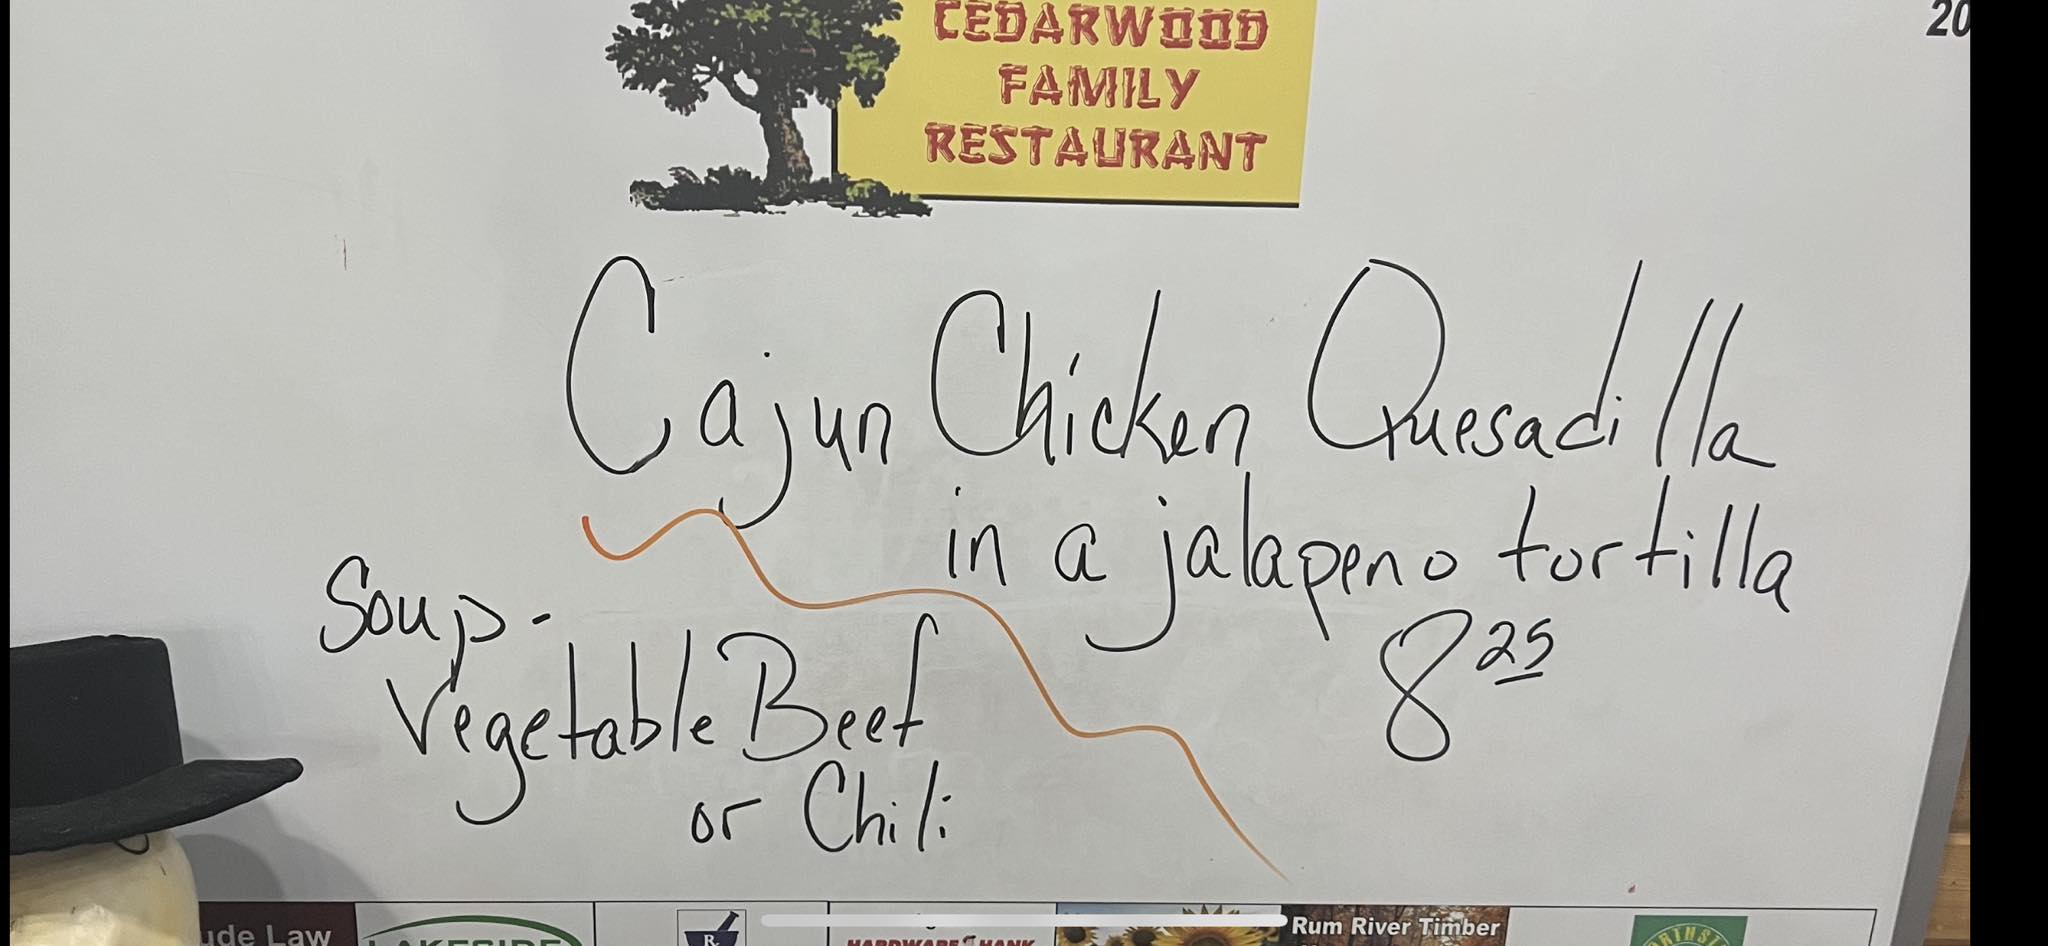 20
CEDARWOOD
FAMILY
RESTAURANT
Cajun Chicken Quesadilla
in a jalapeno tortilla
8 25
Soup -
Vegetable Beef
or Chili
ude Law
LAKESIDE
Rx
HARDWARE HANK
Rum River Timber